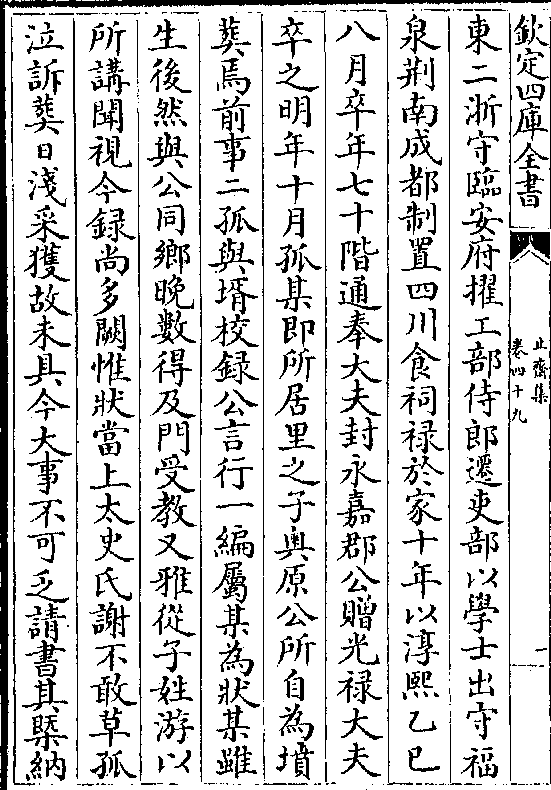 欽定四庫全書
止齋集
卷四十九
一
東二浙守臨安府擢工部侍郎遷吏部以學士出守福
泉荆南成都制置四川食祠禄於家十年以淳熙乙巳
八月卒年七十階通奉大夫封永嘉郡公贈光禄大夫
卒之明年十月孤某即所居里之子奥原公所自為墳
葬焉前事二孤與壻校録公言行一編屬某為狀某雖
生後然與公同鄉晚數得及門受教又雅從子姓游以
所講聞視今録尚多闕惟狀當上太史氏謝不敢草孤
泣訴葬日淺采獲故未具今大事不可乏請書其槩納